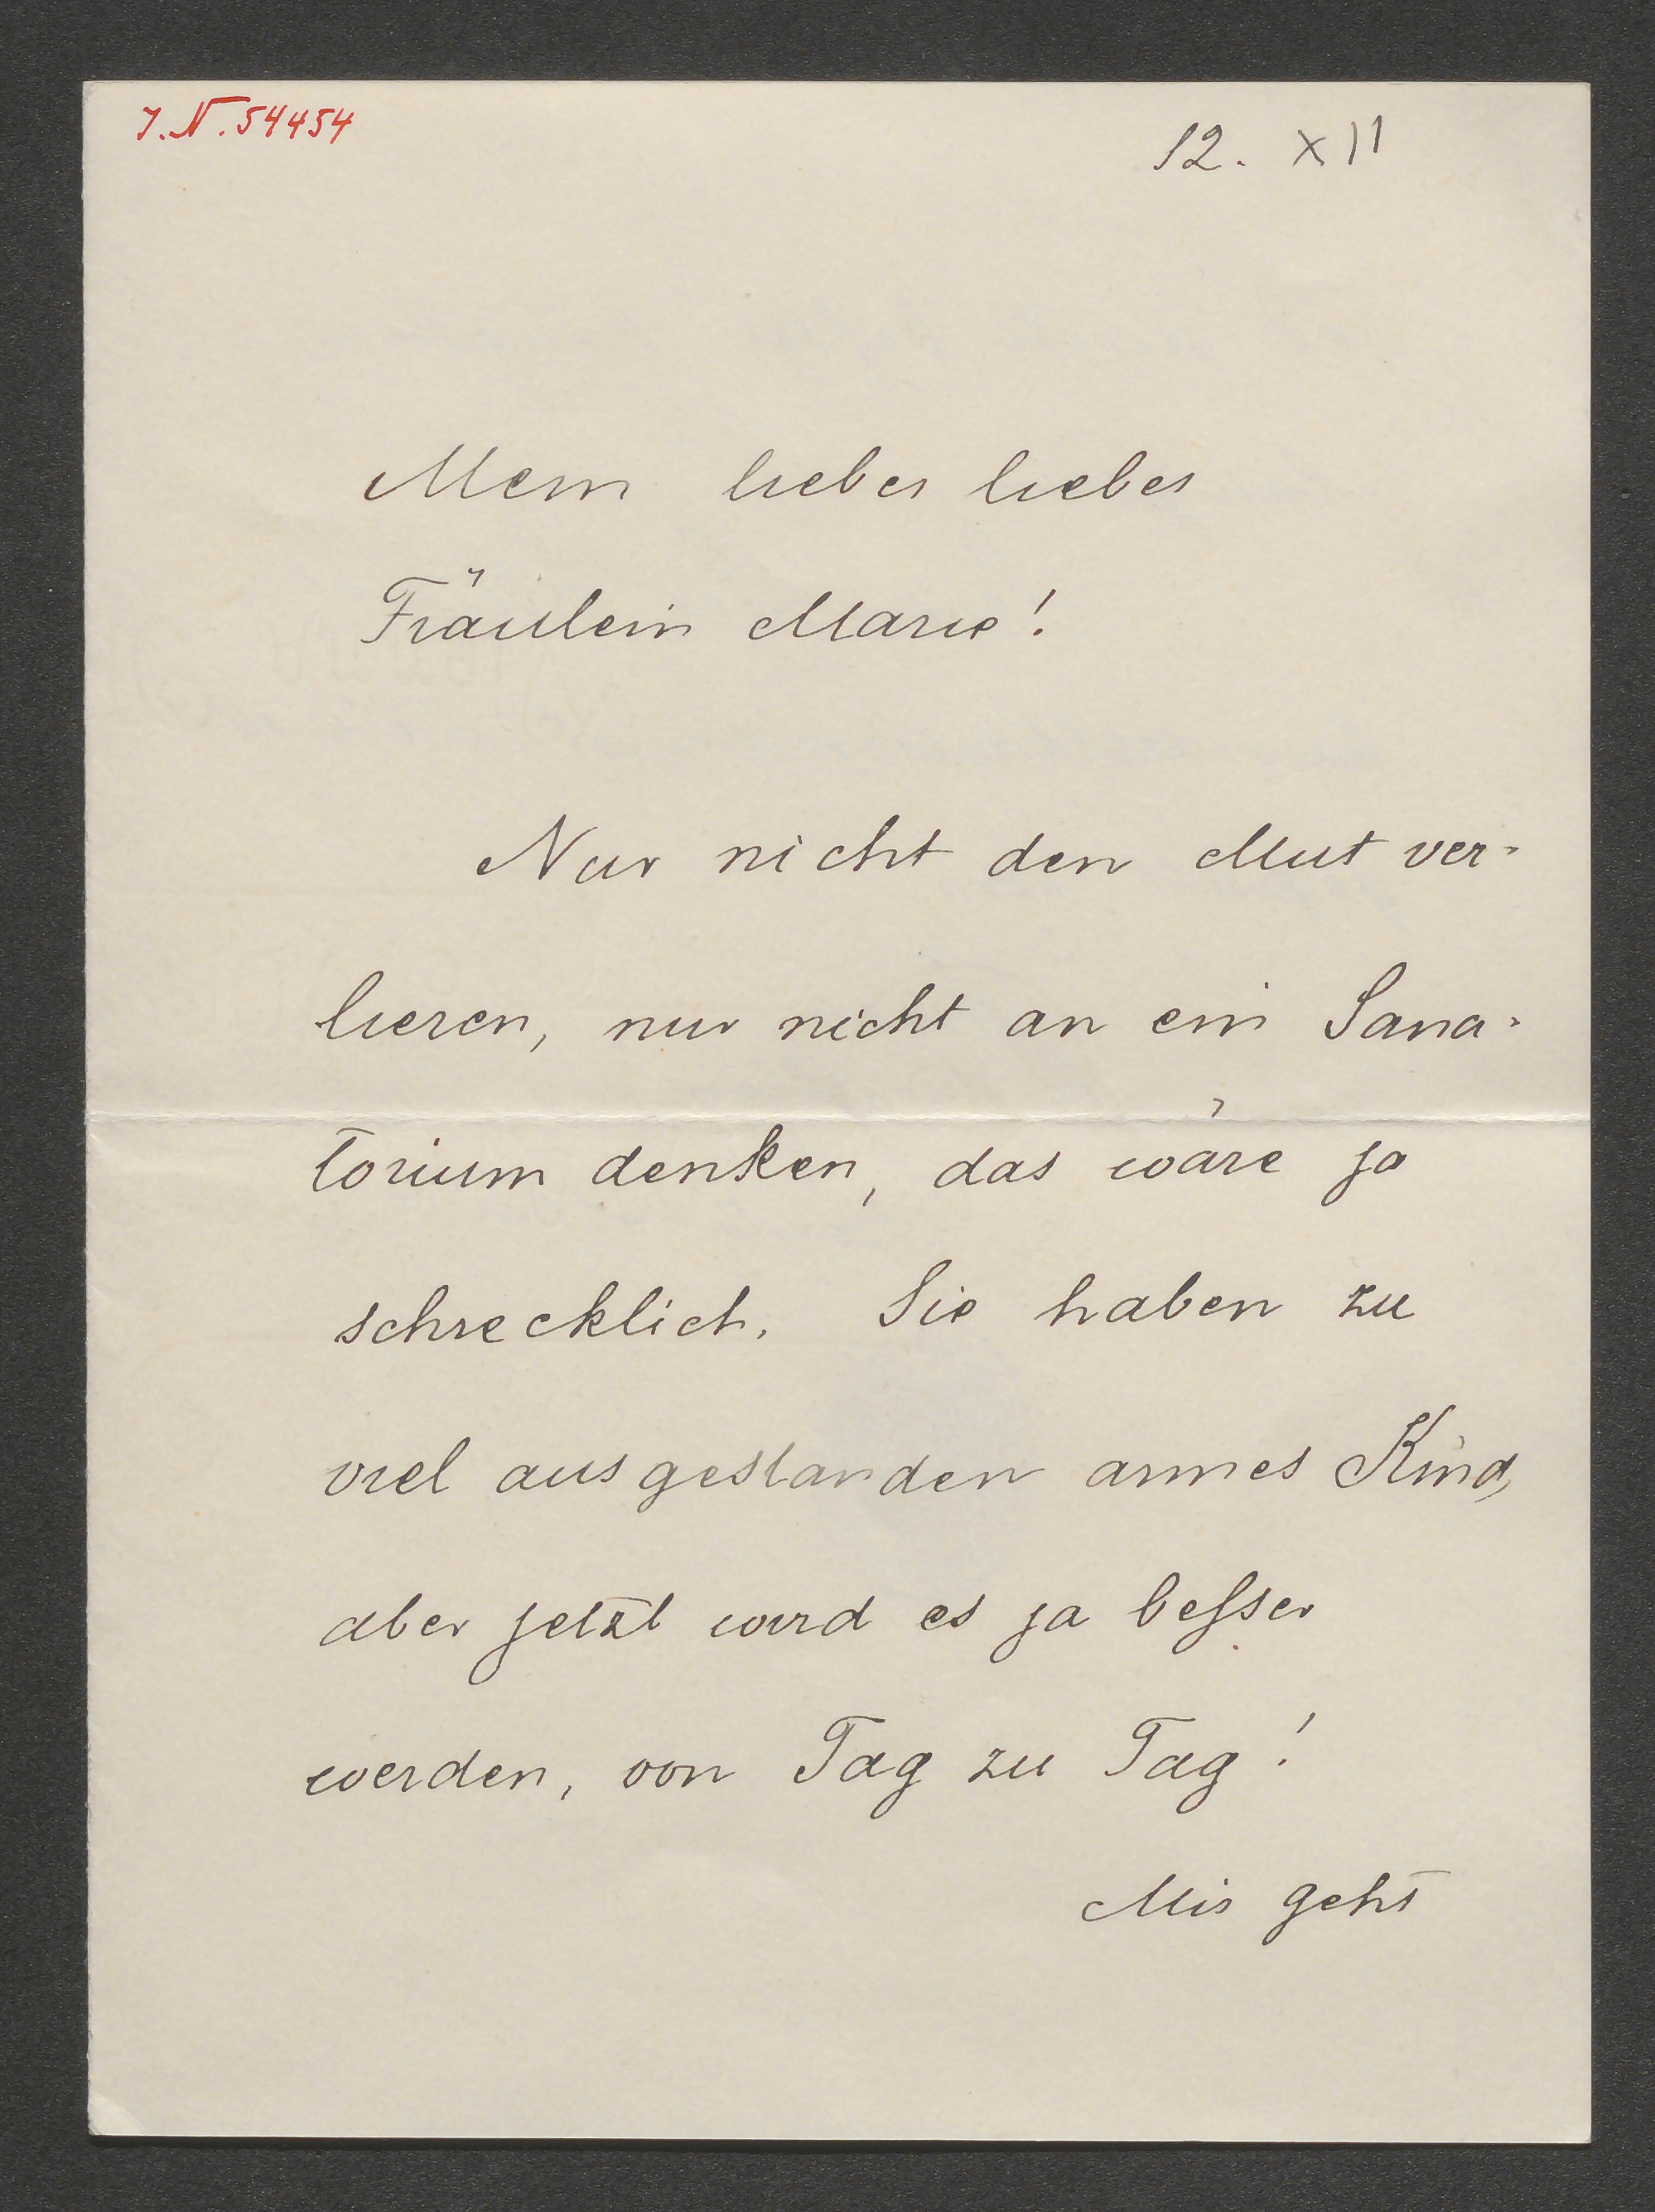 J.N. 54454
12. XII
Mein liebes liebes
Fräulein Marie!
Nur nicht den Mut ver-
lieren, nur nicht an ein Sana-
torium denken, das wäre ja
schrecklich. Sie haben zu
viel ausgestanden armes Kind,
aber jetzt wird es ja besser
werden, von Tag zu Tag!
Mir geht